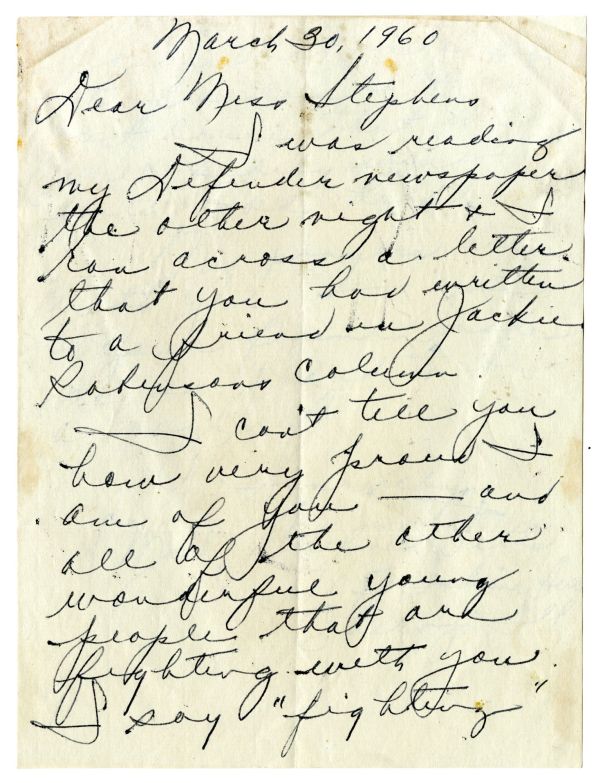 March 30, 1960
Dear Miss Stephens
I was reading
my Defender newspaper
the other night & I
ran across a letter
that you had written
to a friend in Jackie
Robinsons column.
I can't tell you
how very proud I
am of you — and
all of the other
wonderful young
people that are
fighting with you.
I say "fighting"